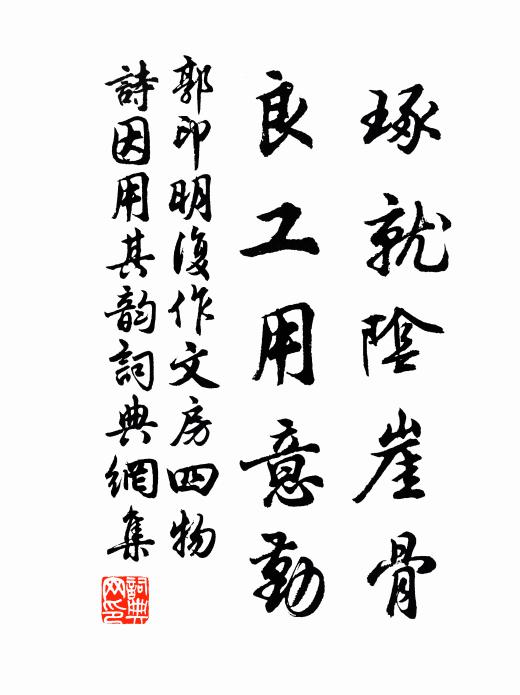 琢就陰崖骨
良工用意勤
郭印明復作文房四物
詩因用其韵詞典網集
詞典网印